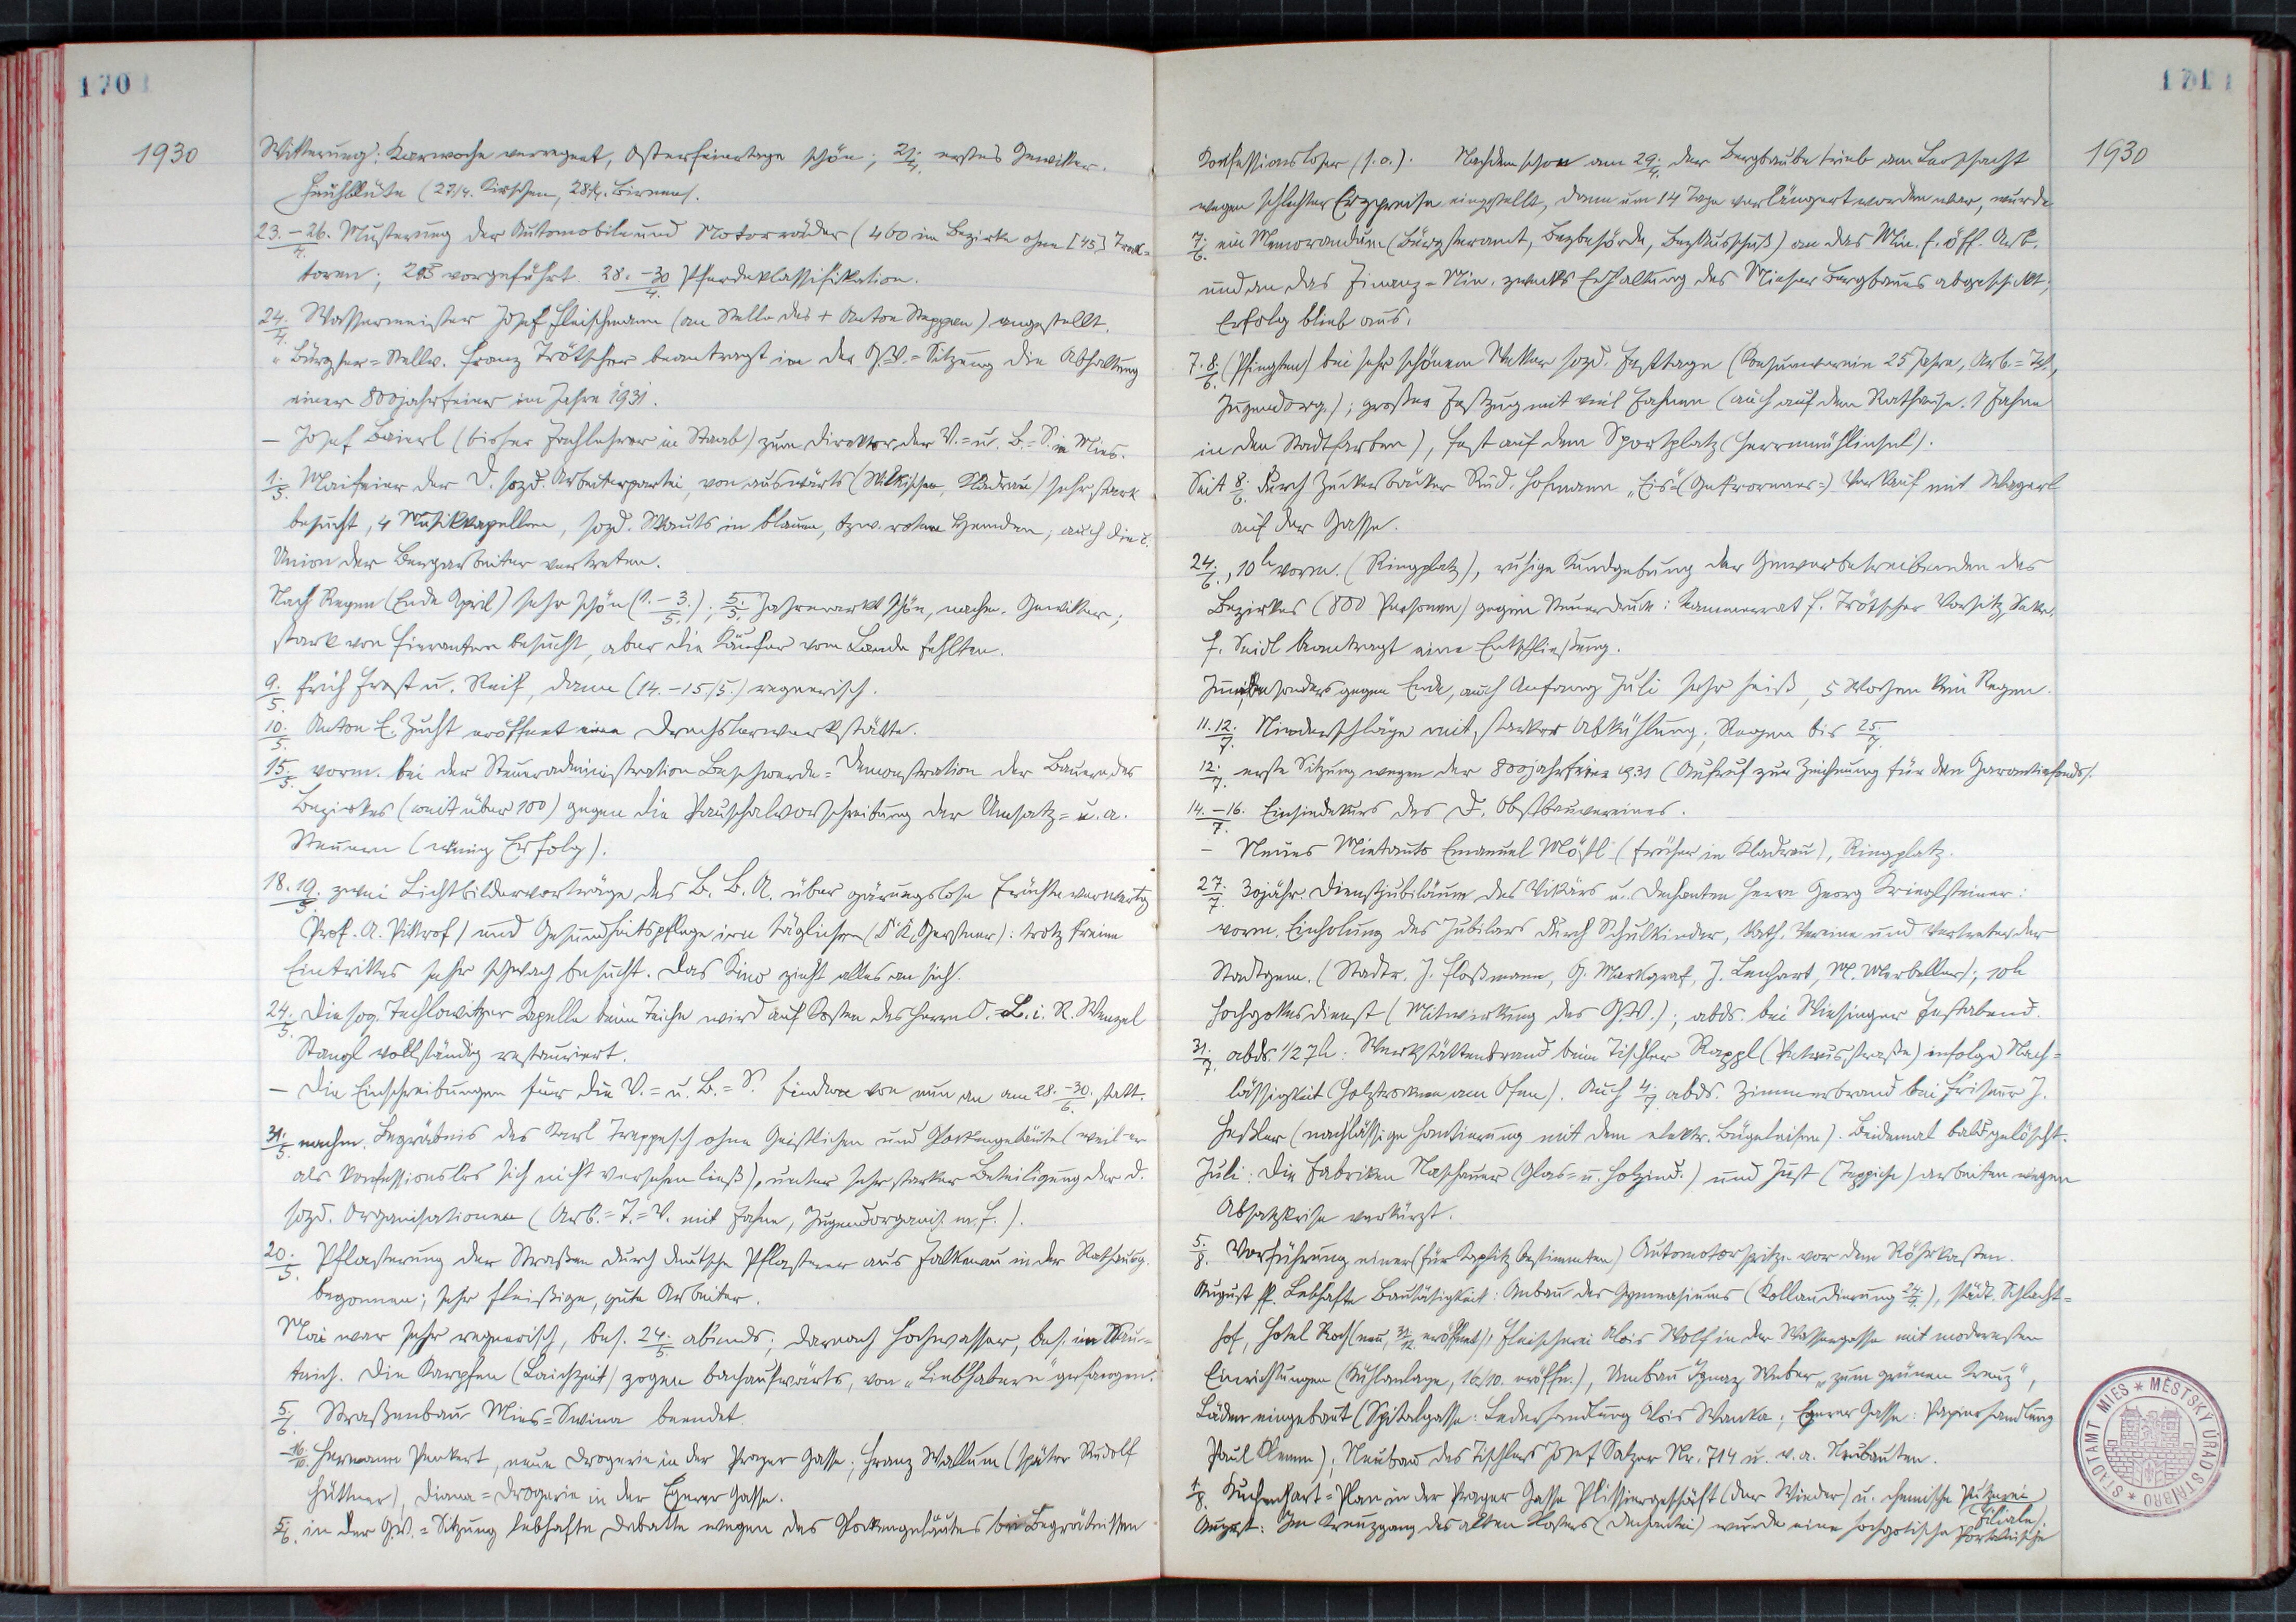 170
1930
Witterung: Karwoche verregnet, Osterfeiertage schön; 21./4. erstes Gewitter.
Frühblüte (27/4. Kirschen, 28/4. Birnen).
23.-26./4. Musterung der Automobile und Motorräder (460 im Bezirke ohne [45] Trak-
toren; 265 vorgeführt. 28.-30/4. Pferdeklassifikation.
24./4. Wassermeister Josef Fleischmann (an Stelle des + Anton Steppen) angestellt.
" Bürgher=Stellv. Franz Trötscher beantragt in der G.V.=Sitzung die Abhaltung
einer 800jahrfeier im Jahre 1931.
— Josef Baierl (bisher Fachlehrer in Staab) zum Direktor der V.= u. B.=S. in Mies.
1./5. Maifeier der D. sozd. Arbeiterpartei, von auswärts (Wilkischen, Kladrau) sehr stark
besucht, 4 Musikkapellen, sozd. Skauts in blauen, bzw. roten Hemden; auch die
Union der Bergarbeiter vertreten.
Nach Regen (Ende April) sehr schön (1.-3./5.); 5./5. Jahrmarkt schön, nachm. Gewitter;
stark von Fieranten besucht, aber die Käufer vom Lande fehlten.
9./5. früh Frost u. Reif, dann (14.-15./5.) regnerisch.
10./5. Anton E. Zucht eröffnet eine Drechslerwerkstätte.
15./5. vorm. bei der Steueradministration Beschwerde=Demonstration der Bauern des
Bezirkes (weit über 100) gegen die Pauschalvorschreibung der Umsatz= u. a.
Steuern (wenig Erfolg).
18.19./5. zwei Lichtbildervorträge des B. B. A. über gärungslose Früchteverwertg
Prof. A. Pittrof) und Gesundheitspflege im täglichen (Dr K. Gerstner): trotz freien
Eintrittes sehr schwach besucht. Das Kino zieht alles an sich.
24./5. Die sog. Techlowitzer Kapelle beim Teiche wird auf Kosten des Herrn O.=L. i. R. Wenzel
Stangl vollständig restauriert.
— Die Einschreibungen für die V.= u. B.=S. finden von nun an am 28.-30./6. statt.
31./5. nachm. Begräbnis des Karl Treppesch ohne Geistlichen und Glockengeläute (weil er
als konfessionslos sich nicht versehen ließ), unter sehr starker Beteiligung der d.
sozd. Organisationen (Arb.=T.=V. mit Fahne, Jugendorganis. m. F.).
20./5. Pflasterung der Straßen durch deutsche Pflasterer aus Falkenau in der Rathausg.
begonnen; sehr fleißige, gute Arbeiter.
Mai war sehr regnerisch, bes. 24./5. abends; darnach Hochwasser, bes. im
teich. Die Karpfen (Laichzeit) zogen bachaufwärts, von „Liebhabern" gefangen.
5./6. Straßenbau Mies=Swina beendet.
-16./6. Hermann Penkert, neue Drogerie in der Prager Gasse; Franz Wallum (später Rudolf
Hüttner), Diana=Drogerie in der Egerer Gasse.
5./6. in der G.V.=Sitzung lebhafte Debatte wegen des Glockengeläutes bei Begräbnissen
171
1930
Konfessionsloser (s.o.). Nachdem schon am 29./4. der Bergbaubetrieb am
wegen schlechter Erzpreise eingestellt, dann um 14 Tage verlängert worden war, wurde
7./6. ein Memorandum (Bürgsteramt, Bezbehörde, Bezausschuß) an das Min. f. öff. Arb.
und an das Finanz=Min. zwecks Erhaltung des Mieser Bergbaues abgeschickt;
Erfolg blieb aus.
7.8./6. (Pfingsten) bei sehr schönem Wetter sozd. Festtage (Konsumverein 25 Jahre, Arb.=T.V.,
Jugendorg.); großer Festzug mit viel Fahnen (auch auf dem Rathause 1 Fahne
in den Stadtfarben), Fest auf dem Sportplatz (Herrnmühlinsel).
Seit 8./6. durch Zuckerbäcker Rud. Hofmann „Eis"(Gefrornes=) Verkauf mit Wagerl
auf der Gasse.
24./6., 10h vorm. (Ringplatz), ruhige Kundgebung der Gewerbetreibenden des
Bezirkes (800 Personen) gegen Steuerdruck: Kammerrat F. Trötscher Vorsitz, Sekr.
F. Seidl beantragt eine Entschließung.
Juni, besonders gegen Ende, auch Anfang Juli sehr heiß, 5 Wochen kein Regen.
11.12./7. Niederschläge mit starker Abkühlung; Regen bis 25./7.
12./7. erste Sitzung wegen der 800jahrfeier 1931 (Aufruf zur Zeichnung für den Garantiefonds).
14.-16./7. Einsiedekurs des D. Obstbauvereines.
— Neues Mietauto Emanuel Mößl (früher in Kladrau), Ringplatz.
27./7. 30jähr. Dienstjubiläum des Vikärs u. Dechanten Herrn Georg Krieglsteiner:
vorm. Einholung des Jubilars durch Schulkinder, kath. Vereine und Vertreter der
Stadtgem. (Stadtr. J. Floßmann, G. Markgraf, J. Lenhart, M. Merbeller); 10h
Hochgottesdienst (Mitwirkung des G.V.); abds. bei Wiesinger Festabend.
31./7. abds. 1/2 7h: Werkstättenbrand beim Tischler Rappl (Petrusstraße) infolge Nach-
lässigkeit (Holztrocknen am Ofen). Auch 4./7. abds. Zimmerbrand bei Friseur J.
Heßler (nachlässige Hantierung mit dem elektr. Bügeleisen). Beidemal bald gelöscht.
Juli: Die Fabriken Naschauer (Glas= u. Holzind.) und Just (Teppiche) arbeiten wegen
Absatzkrise verkürzt.
5./8. Vorführung einer (für Teplitz bestimmten) Automotorspritze vor dem Röhrkasten.
August ff. Lebhafte Bautätigkeit: Anbau des Gymnasiums (Kollaudierung 24./9.), städt. Schlacht-
hof, Hotel Koch (neu, 31./12. eröffnet), Fleischerei Alois Wolf in der Wassergasse mit modernsten
Einrichtungen (Kühlanlage, 16/10. eröffn.), Umbau Ignaz Weber „zum grünen Kreuz",
Läden eingebaut (Spitalgasse: Lederhandlung Alois Wanka; Egerer Gasse: Papierhandlung
Paul Klemm); Neubau des Tischlers Josef Salzer Nr. 714 u. v. a. Neubauten.
1./8. Kuchenhart=Plan in der Prager Gasse Plissiergeschäft (der Wiener) u. chemische Putzerei
(Filiale).
August: Im Kreuzgang des alten Klosters (Dechantei) wurde eine hochgotische Portalnische
STADTAMT MIES * MĚSTSKÝ ÚŘAD STŘÍBRO *